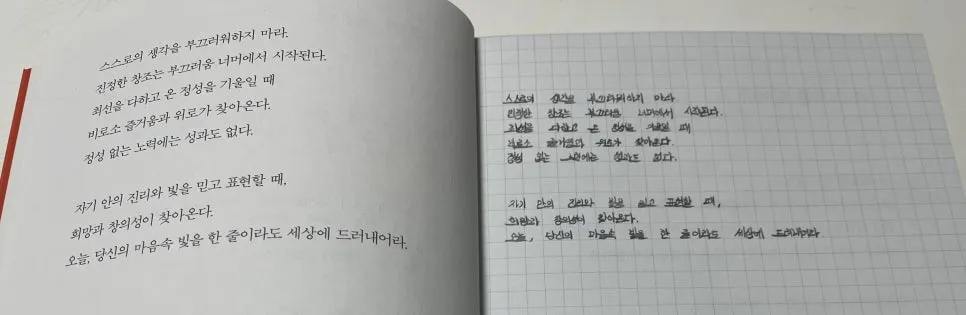 스스로의 생각을 부끄러워하지 마라.
진정한 창조는 부끄러움 너머에서 시작된다.
최선을 다하고 온 정성을 기울일 때
비로소 즐거움과 위로가 찾아온다.
정성 없는 노력에는 성과도 없다.
자기 안의 진리와 빛을 믿고 표현할 때,
희망과 창의성이 찾아온다.
오늘, 당신의 마음속 빛을 한 줄이라도 세상에 드러내어라.
스스로의 생각을 부끄러워하지 마라
진정한 창조는 부끄러움 너머에서 시작된다.
최선을 다하고 온 정성을 기울일 때
비로소 즐거움과 위로가 찾아온다.
정성 없는 노력에는 성과도 없다.
자기 안의 진리와 빛을 믿고 표현할 때,
희망과 창의성이 찾아온다.
오늘, 당신의 마음속 빛을 한 줄이라도 세상에 드러내어라